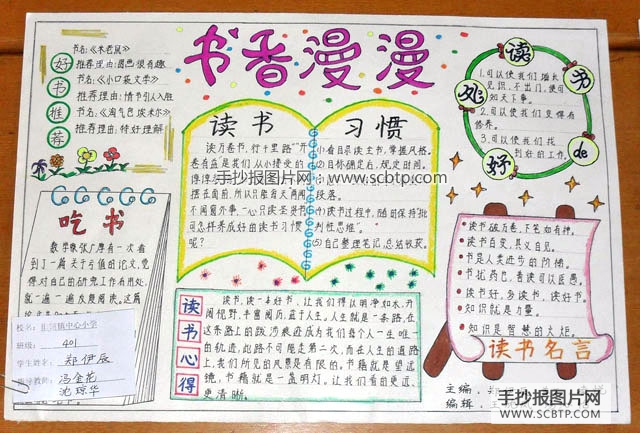 书香漫漫
好书推荐
书名:《米老鼠》
推荐理由:图画很有趣
书名:《小口袋文学》
推荐理由:情书引人入胜
书名:《淘气包埃米尔》
推荐理由:特好理解
读书 习惯
读万卷书,行十里路"开
卷有益是我们从小接受的
摆在面前,所以只能每天两闻
不闻窗外事,一心只读圣贤书
可怎样养成好的读书习惯
呢?
(1)看目录读主书,掌握风格。
(2)目标确定右,规定时间。
段落。
(4)读书过程中,随时保持'批
判性思维'。
(5)自己整理笔记,总结收获。
读书的好处
1.可以使我们增长
见识,不出门,便可
知天下事。
2.可以使我们变得有
修养。
3.可以使我们找
到好的工作。
吃书
数学家张广厚有一次看
到了一篇关于亏值的论文,觉
得对自己的研究工作有用处,
就一遍一遍反复阅读。这篇
校名:
中心小学
班级:
401
学生姓名:
郑伊辰
指导教师:
冯金花
沈琼华
读书心得
读书,读一本好书,让我们得以明净如水,开
阔视野,丰富阅历,益于人生。人生就是一条路,在
这条路上的跋涉痕迹成为我们每个人一生唯一
的轨迹,此路不可能走第二次,而在人生的道路
上,我们所见的风景是有限的。书籍就是望远
镜,书籍就是一盏明灯。让我们看的更远、
更清晰。
读书破万卷,下笔如有神。
读书百变,其义自见。
书是人类进步的阶梯。
书犹药也,善读可以医愚。
读书好,多读书,读好书。
知识就是力量。
知识是智慧的火炬。
读书名言
主编:
编辑:
手抄报图片网-www.scbtp.com
手抄报图片网
WWW.SCBTP.COM